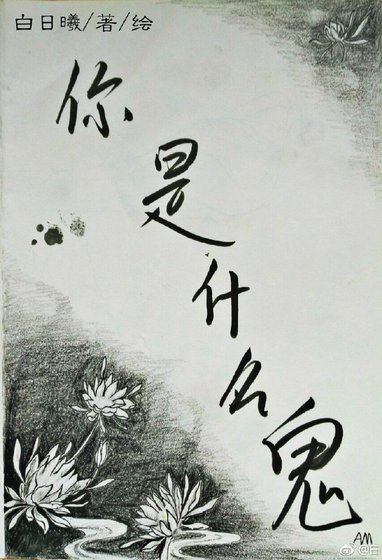 白日曦/著/绘
你是什么鬼
AM